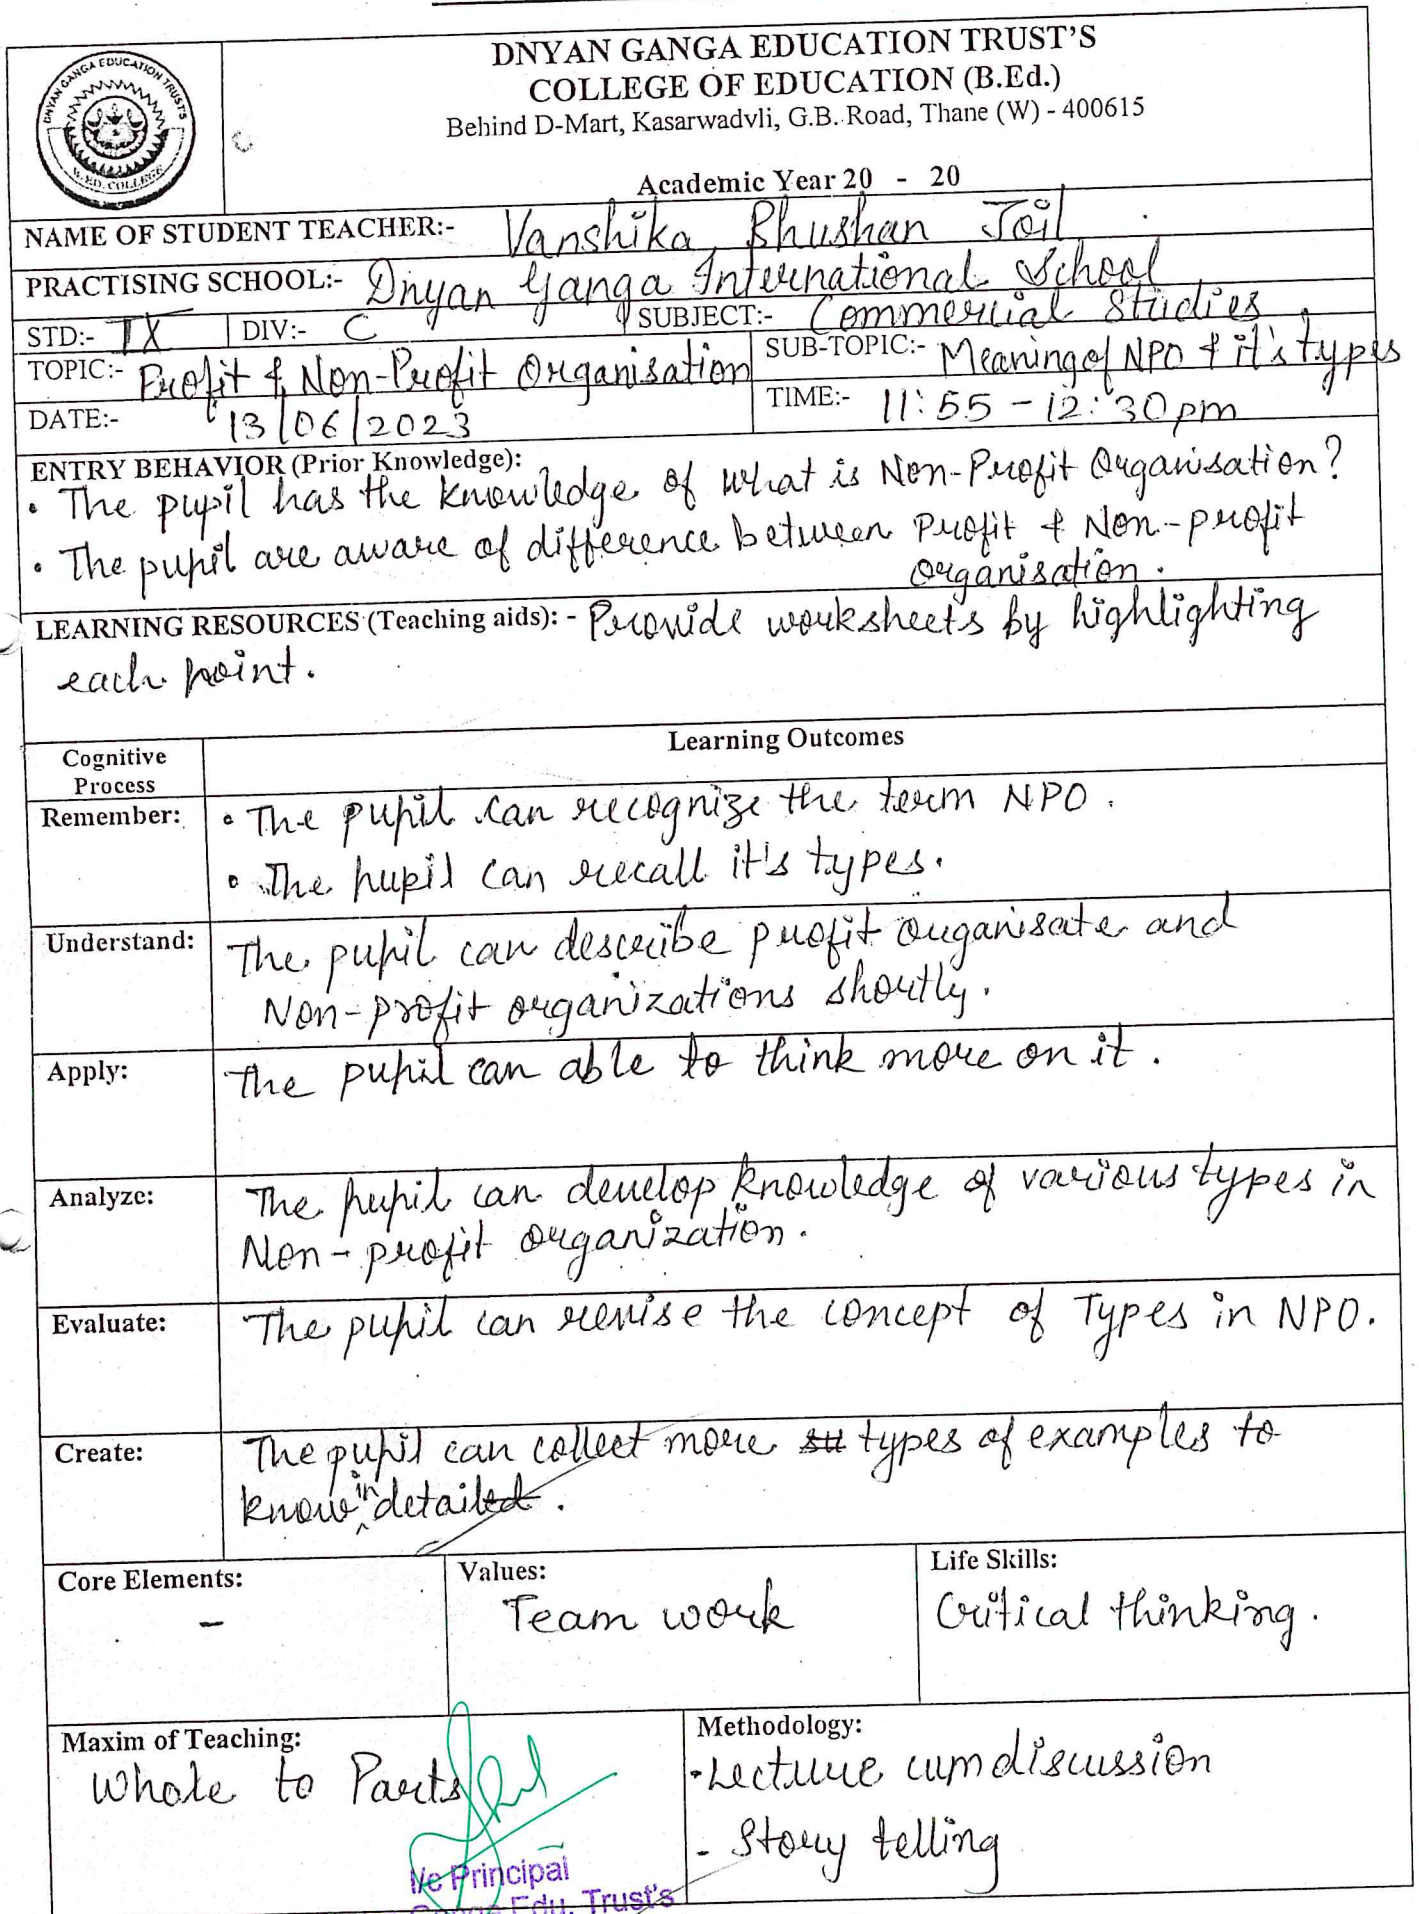 DNYAN GANGA EDUCATION TRUST'S
W. ED. COLLEGE
DNYAN GANGA EDUCATION TRUST'S
COLLEGE OF EDUCATION (B.Ed.)
Behind D-Mart, Kasarwadvli, G.B. Road, Thane (W) - 400615
Academic Year 20 - 20
NAME OF STUDENT TEACHER:- Vanshika Bhushan Joil
PRACTISING SCHOOL:- Dnyan Ganga International School
STD:- IX DIV:- C SUBJECT:- Commercial Studies
TOPIC:- Profit & Non-Profit Organisation SUB-TOPIC:- Meaning of NPO & it's types
DATE:- 13/06/2023 TIME:- 11:55 - 12:30pm
ENTRY BEHAVIOR (Prior Knowledge):
• The pupil has the knowledge of what is Non-Profit Organisation?
• The pupil are aware of difference between Profit & Non-profit
organisation.
LEARNING RESOURCES (Teaching aids): - Provide worksheets by highlighting
each point.
Cognitive Process Learning Outcomes
Remember: • The pupil can recognize the term NPO.
• The pupil can recall it's types.
Understand: The pupil can describe profit organisate and
Non-profit organizations shortly.
Apply: The pupil can able to think more on it.
Analyze: The pupil can develop knowledge of various types in
Non-profit organization.
Evaluate: The pupil can revise the concept of Types in NPO.
Create: The pupil can collect more types of examples to
know in detail.
Core Elements: Values: Life Skills:
- Team work Critical thinking.
Maxim of Teaching: Methodology:
Whole to Parts • Lecture cum discussion
- Story telling
I/c Principal
Edu. Trust's